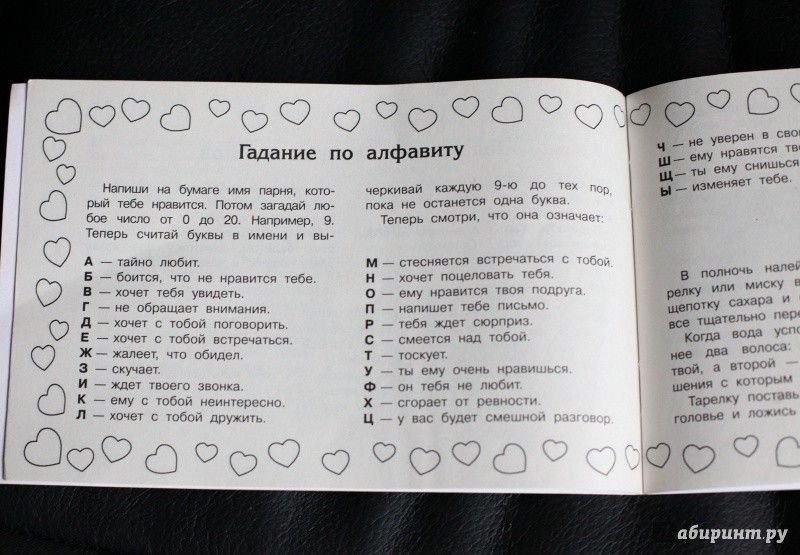 Гадание по алфавиту
Напиши на бумаге имя парня, кото-
рый тебе нравится. Потом загадай лю-
бое число от 0 до 20. Например, 9.
Теперь считай буквы в имени и вы-
черкивай каждую 9-ю до тех пор,
пока не останется одна буква.
Теперь смотри, что она означает:
А — тайно любит.
Б — боится, что не нравится тебе.
В — хочет тебя увидеть.
Г — не обращает внимания.
Д — хочет с тобой поговорить.
Е — хочет с тобой встречаться.
Ж — жалеет, что обидел.
З — скучает.
И — ждет твоего звонка.
К — ему с тобой неинтересно.
Л — хочет с тобой дружить.
М — стесняется встречаться с тобой.
Н — хочет поцеловать тебя.
О — ему нравится твоя подруга.
П — напишет тебе письмо.
Р — тебя ждет сюрприз.
С — смеется над тобой.
Т — тоскует.
У — ты ему очень нравишься.
Ф — он тебя не любит.
Х — сгорает от ревности.
Ц — у вас будет смешной разговор.
Ч — не уверен в сво
Ш — ему нравятся тво
Щ — ты ему снишься
Ы — изменяет тебе.
В полночь налей
релку или миску в
щепотку сахара и
все тщательно пере
Когда вода успо
нее два волоса:
твой, а второй —
шения с которым
Тарелку поставь
головье и ложись
абиринт.ру